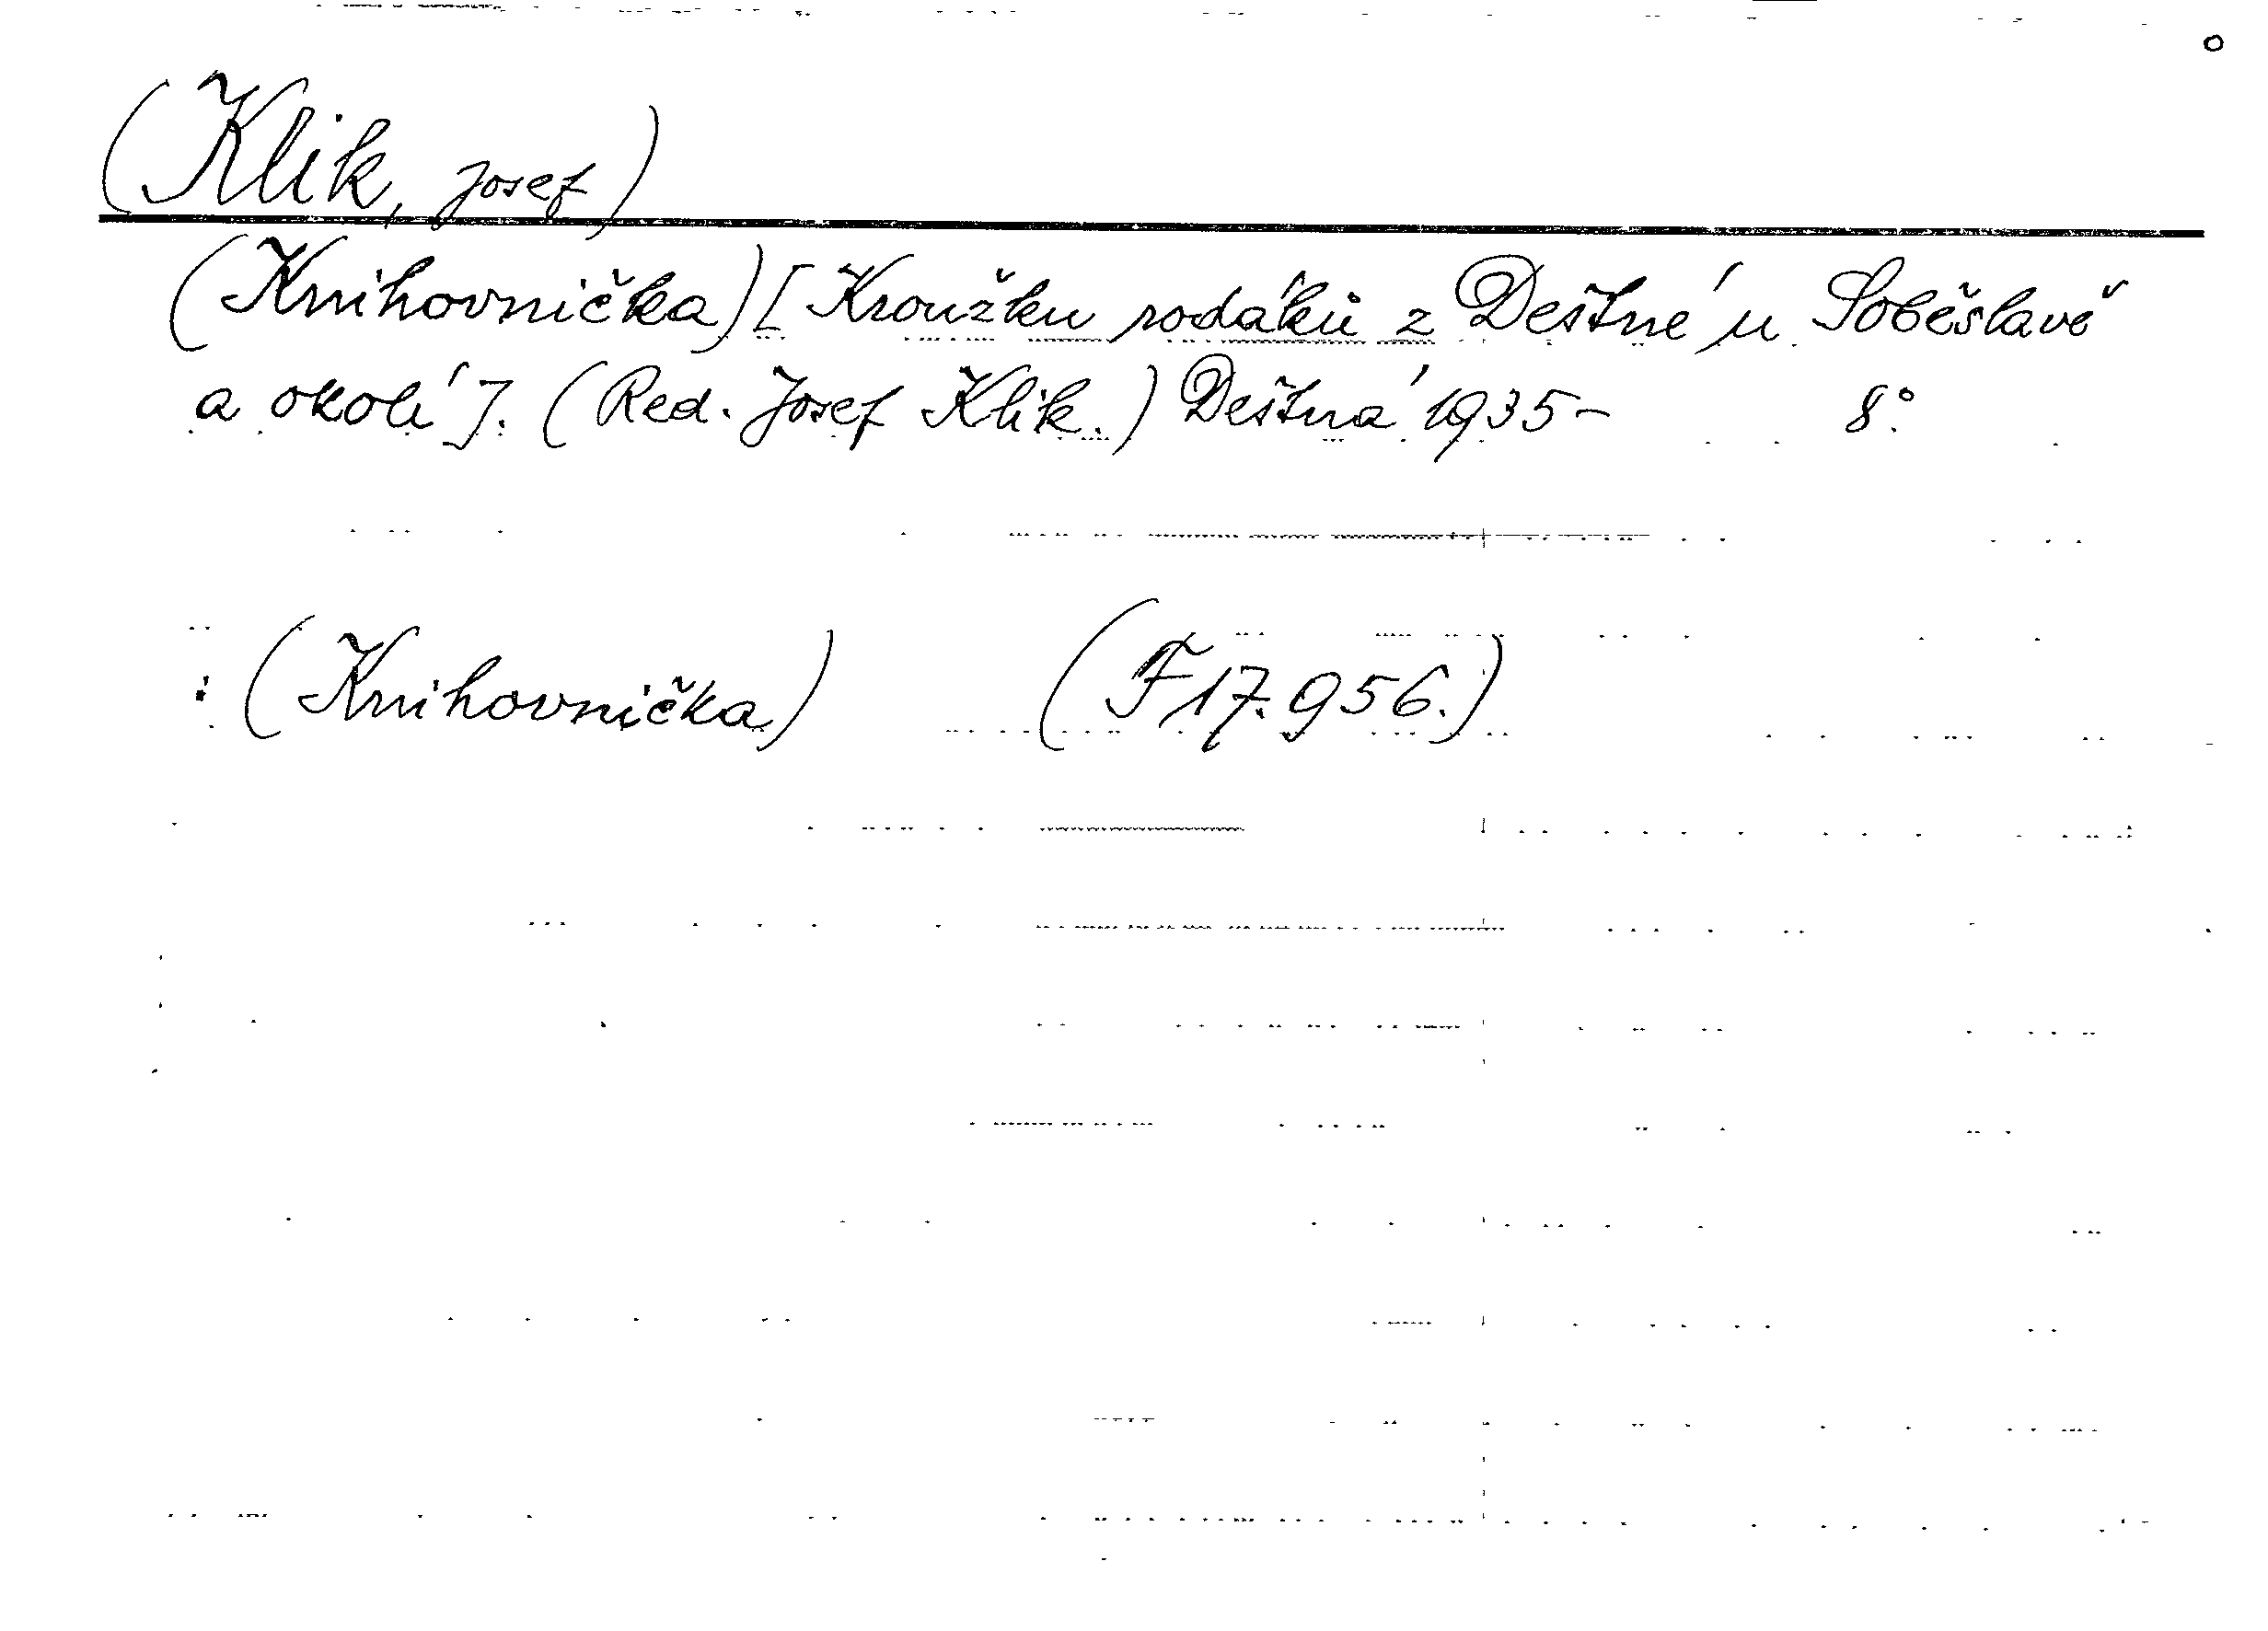 (Klik, Josef)
(Knihovnička) [Kroužku rodáků z Deštné u Soběslavě
a okolí]. (Red. Josef Klik.) Deštná 1935- 8°
: (Knihovnička) (F 17.956.)